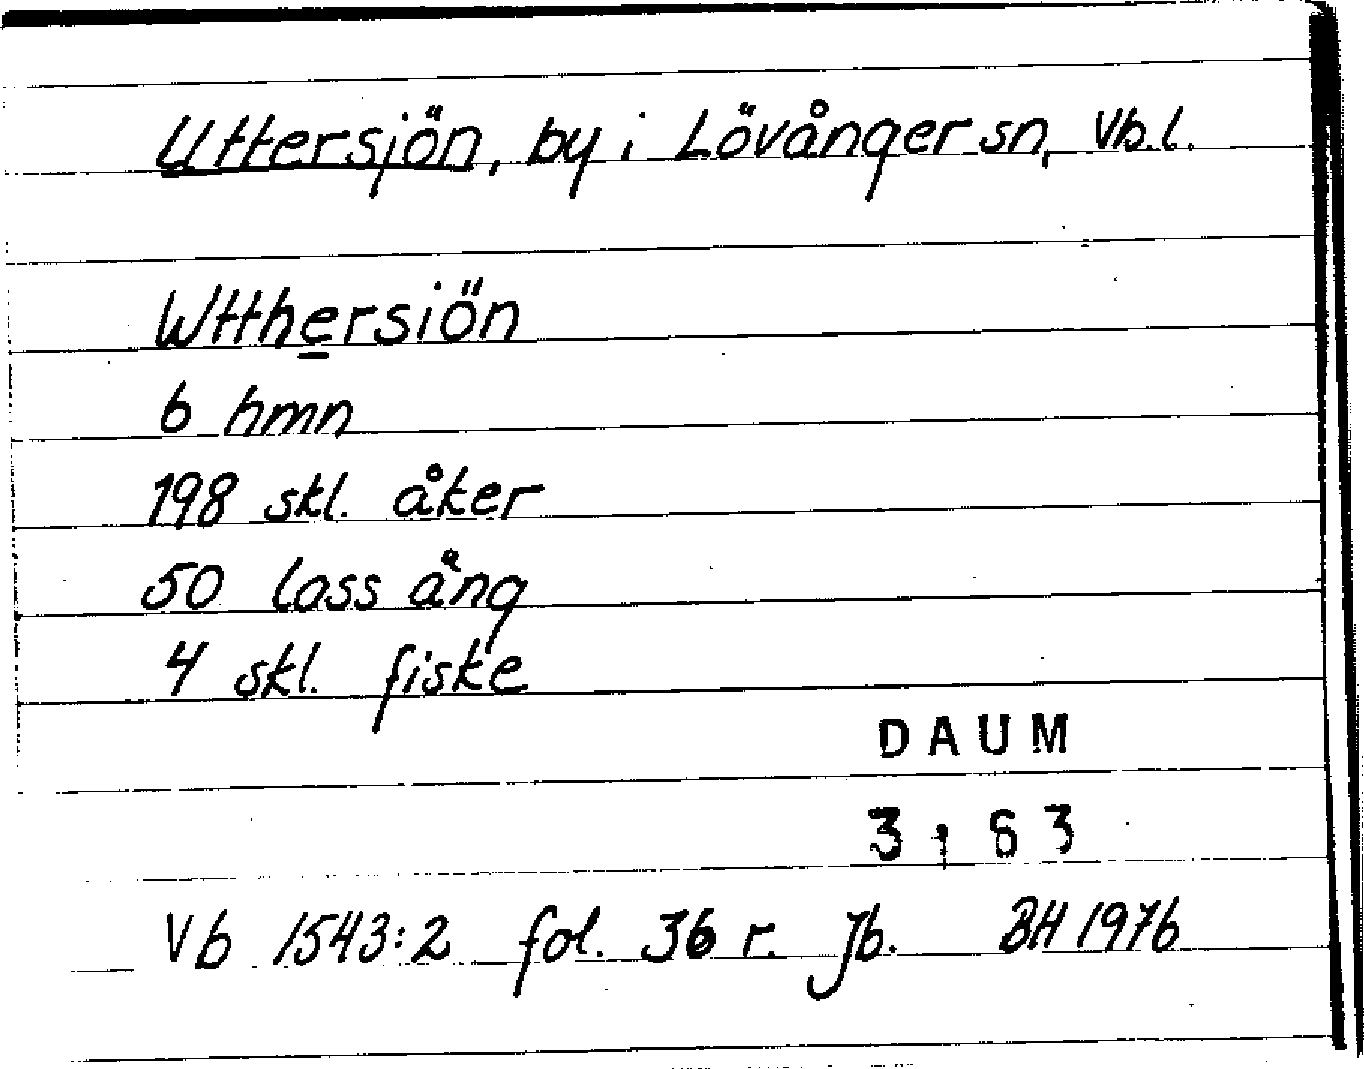 Uttersjön, by i Lövånger sn, Vb.l.
Wtthersiön
6 hmn
198 skl. åker
50 lass äng
4 skl. fiske
DAUM
3:63
Vb 1543:2 fol. 36 r. Jb. BH 1976